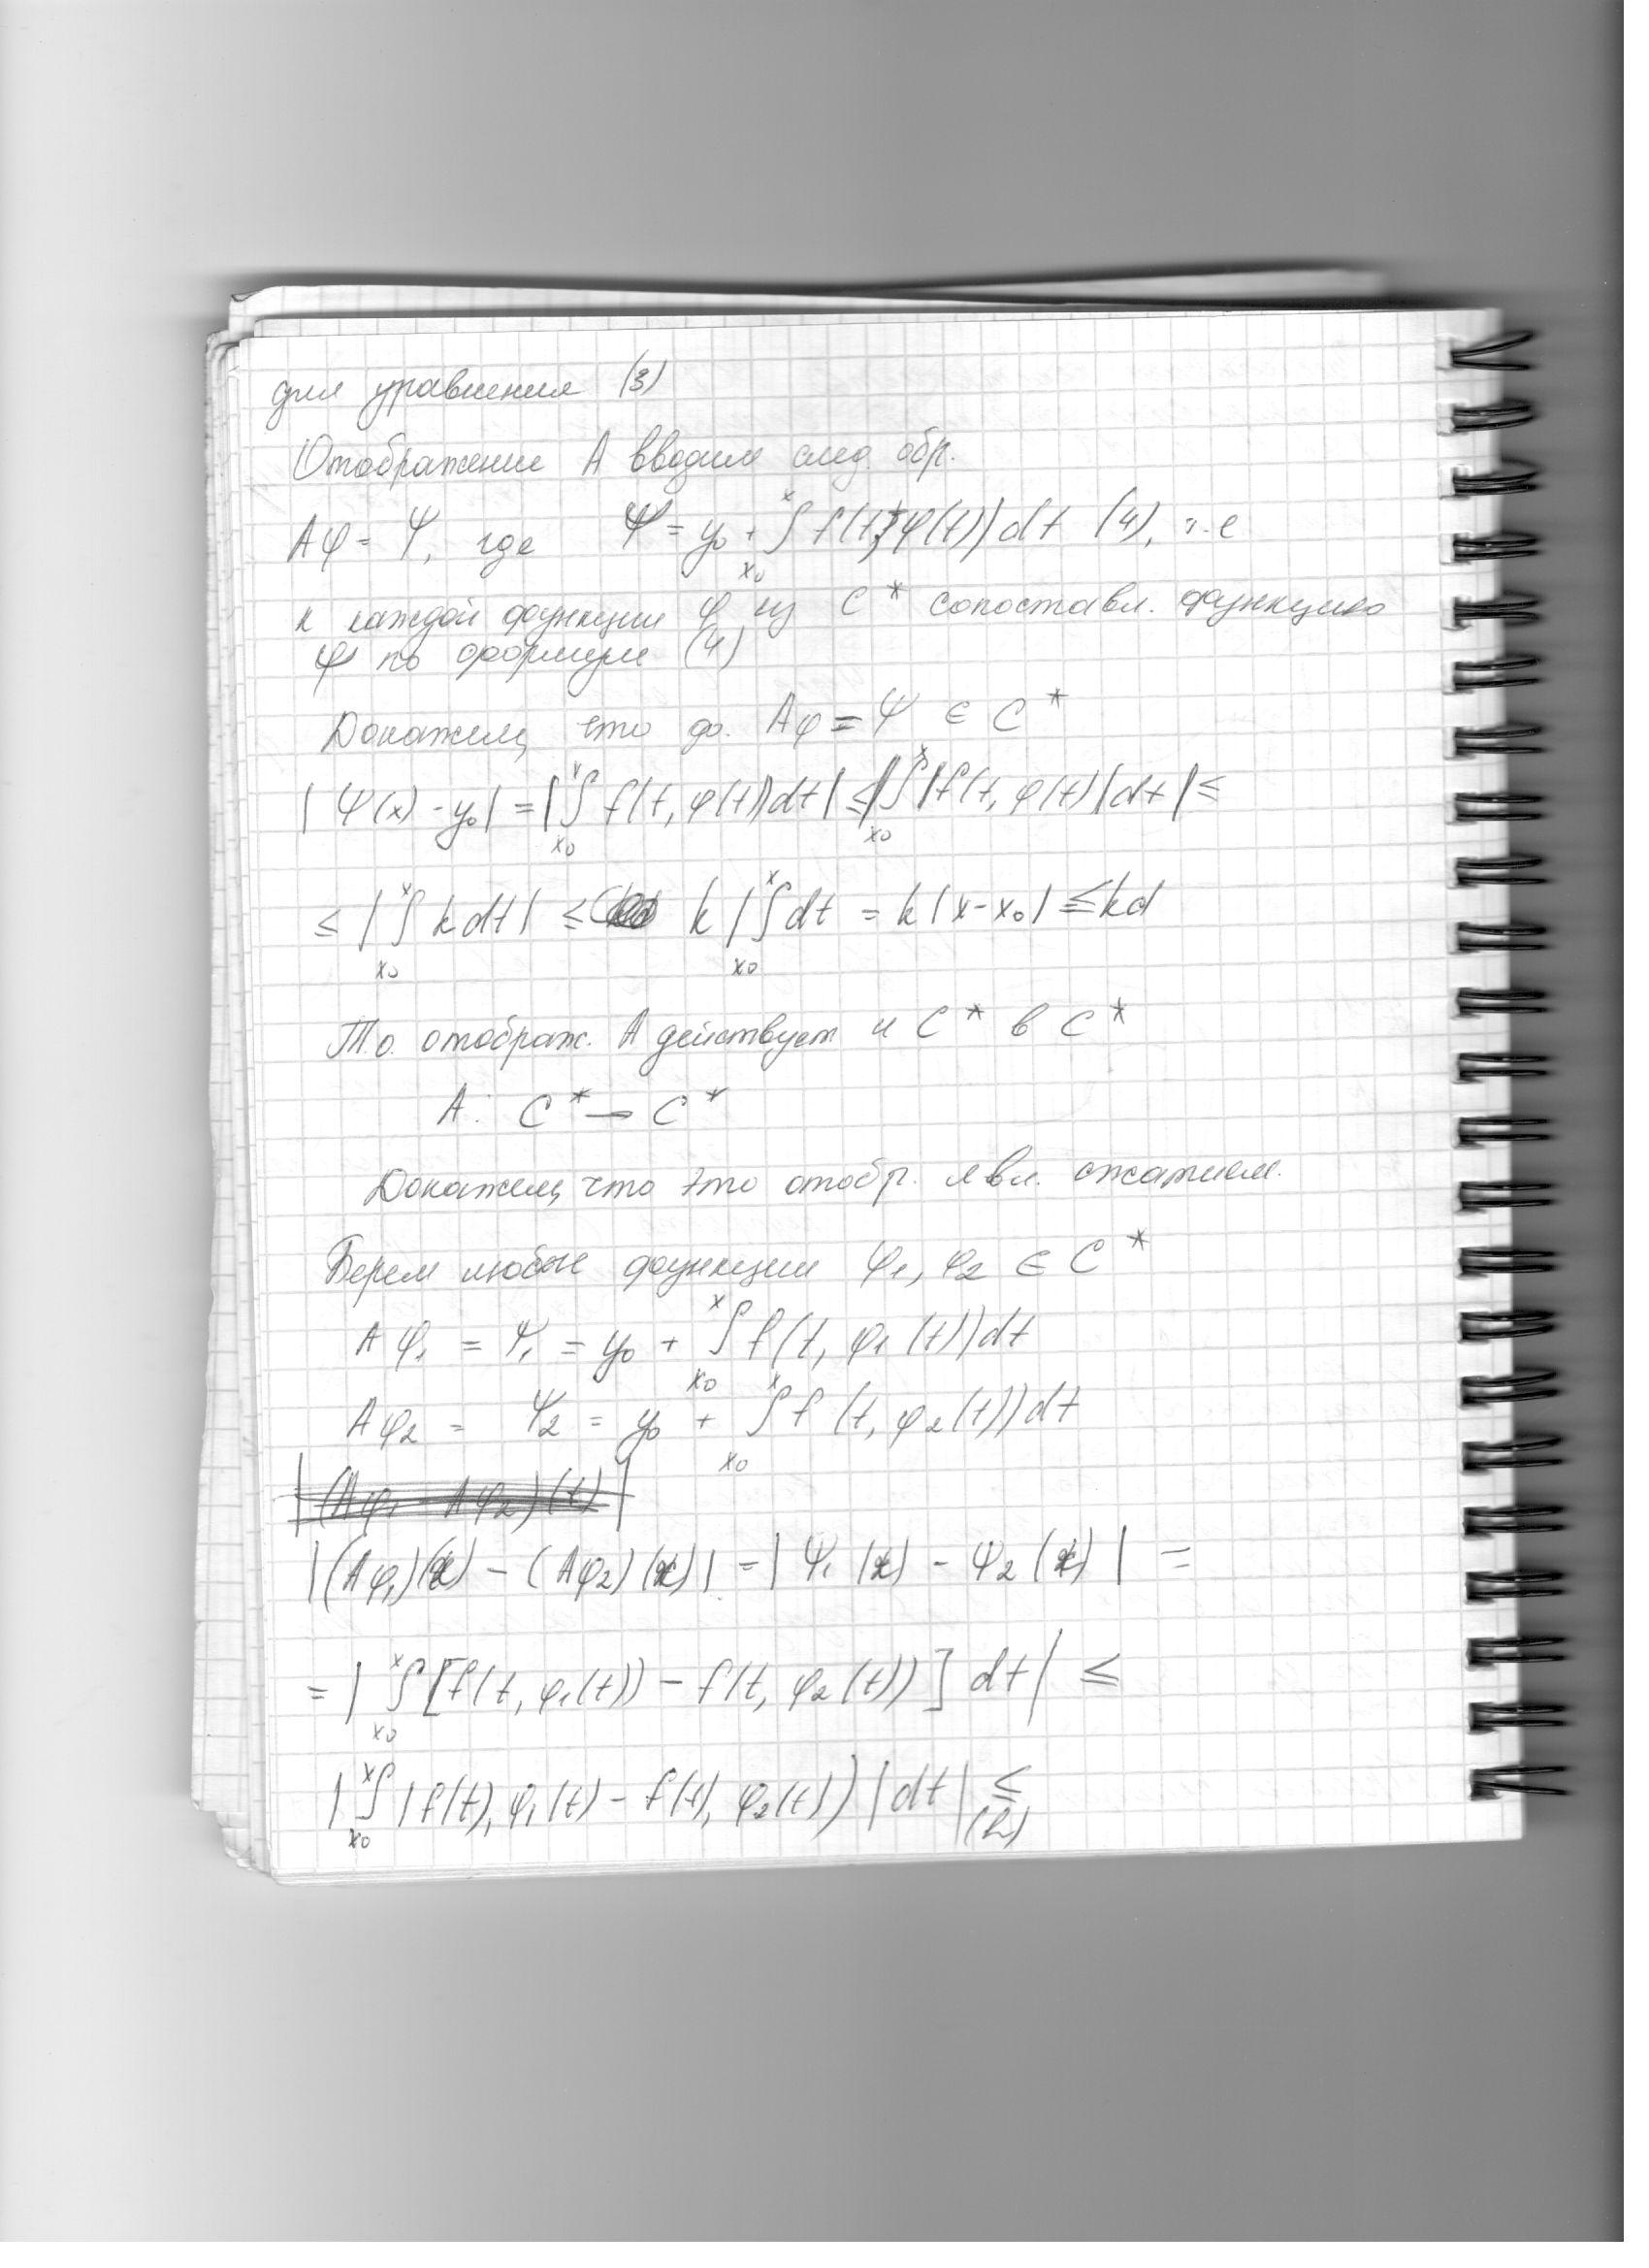 для уравнения (3)
Отображение A вводим след. обр.
Aφ = Ψ, где Ψ = y₀ + ∫ₓ₀ˣ f(t, φ(t))dt (4), т.е
к каждой функции φ из C* сопоставл. функцию
ψ по формуле (4)
Докажем, что Aφ = Ψ ∈ C*
|Ψ(x) - y₀| = |∫ₓ₀ˣ f(t, φ(t))dt| ≤ |∫ₓ₀ˣ |f(t, φ(t)|dt| ≤
≤ |∫ₓ₀ˣ k dt| ≤ k |∫ₓ₀ˣ dt = k|x-x₀| ≤ kd
Т.о. отображ. A действует и C* в C*
A: C* → C*
Докажем, что это отобр. явл. сжатием.
Берем любые функции φ₁, φ₂ ∈ C*
Aφ₁ = Ψ₁ = y₀ + ∫ₓ₀ˣ f(t, φ₁(t))dt
Aφ₂ = Ψ₂ = y₀ + ∫ₓ₀ˣ f(t, φ₂(t))dt
|(Aφ₁ - Aφ₂)(t)|
|(Aφ₁)(x) - (Aφ₂)(x)| = |Ψ₁(x) - Ψ₂(x)| =
= |∫ₓ₀ˣ [f(t, φ₁(t)) - f(t, φ₂(t))] dt| ≤
|∫ₓ₀ˣ |f(t), φ₁(t) - f(t), φ₂(t))|dt| ≤